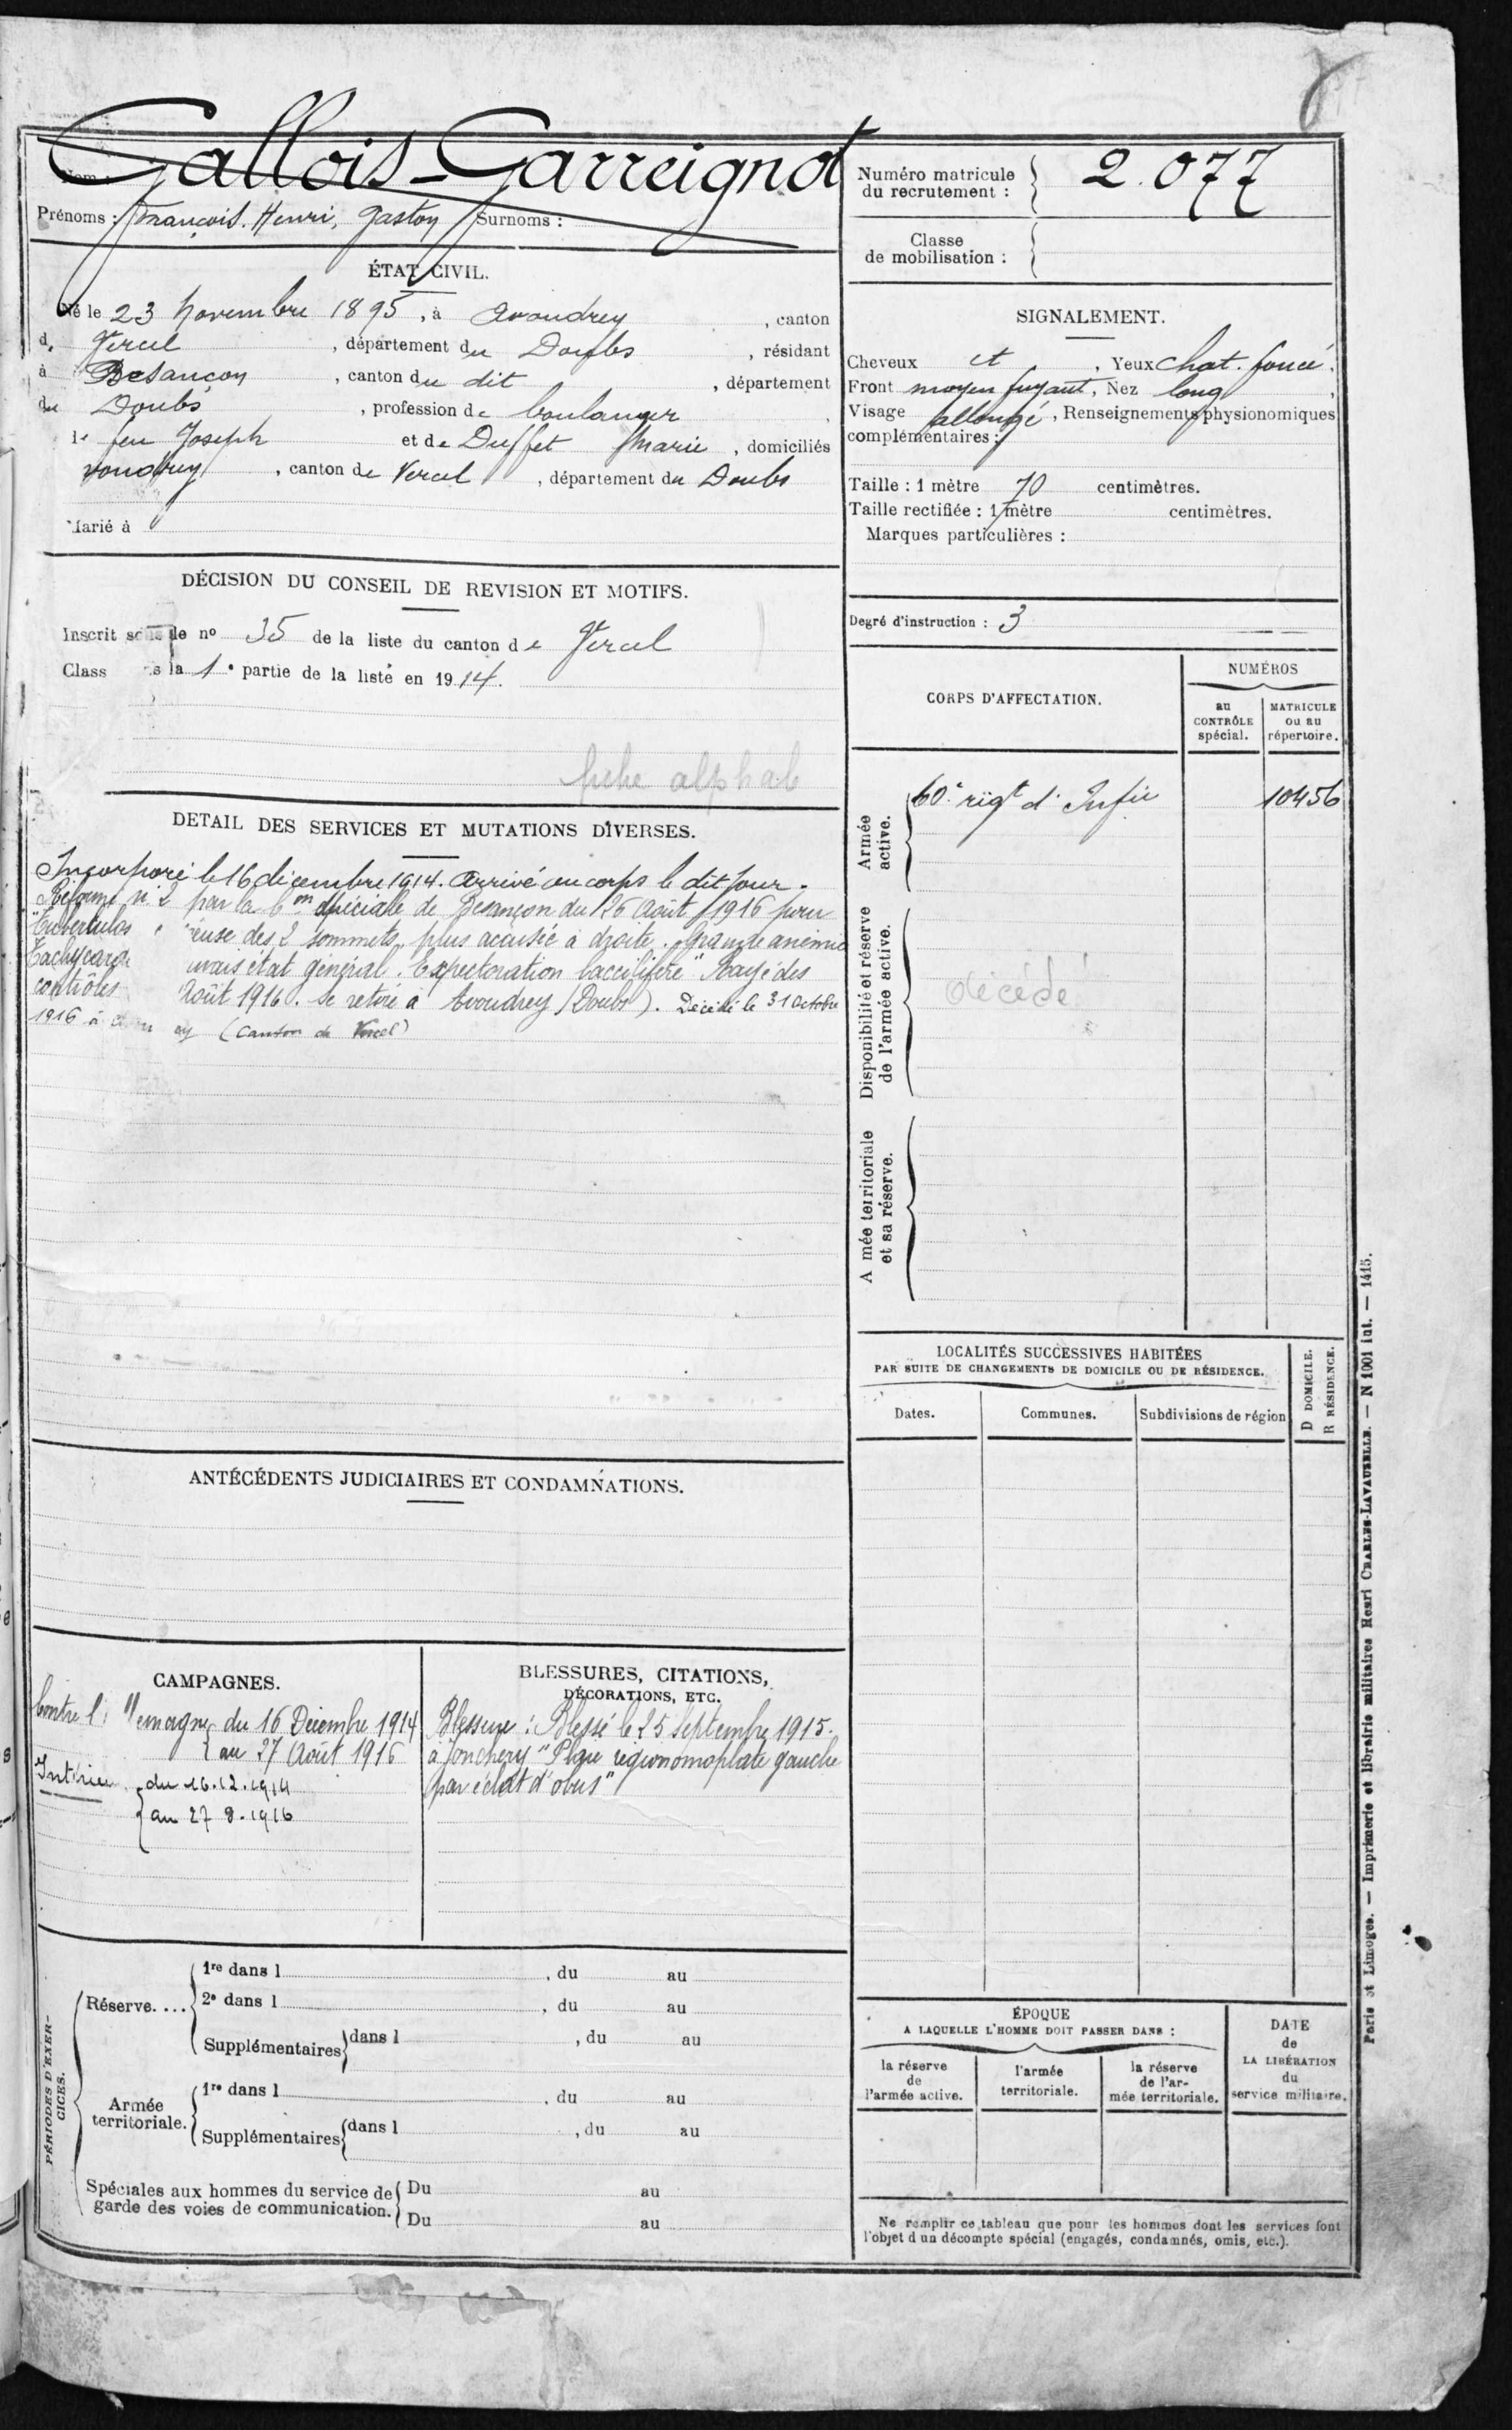 Gallois-Garreignot
Nom :
Prénoms : François, Henri, Gaston Surnoms :
ÉTAT CIVIL.
Né le 23 novembre 1895, à Avoudrey, canton
de Vercel, département du Doubs, résidant
à Besançon, canton du dit, département
du Doubs, profession de boulanger,
feu Joseph et de Duffet Marie, domiciliés
voudrey, canton de Vercel, département du Doubs
Marié à
DÉCISION DU CONSEIL DE REVISION ET MOTIFS.
Inscrit sous le no 35 de la liste du canton de Vercel
Class s la 1e partie de la liste en 1914.
fiche alphab
DÉTAIL DES SERVICES ET MUTATIONS DIVERSES.
Incorporé le 16 décembre 1914. Arrivé au corps le dit jour.
Réformé n° 2 par la Con spéciale de Besançon du 26 Août 1916 pour
"Tuberculos euse des 2 sommets, plus accusée à droite. Grande anémie
Tachycard uvais état général. Expectoration baccilifère" Rayé des
contrôles Août 1916. Se retire à Avoudrey (Doubs). Décédé le 31 Octobre
1916 à ey (Canton de Vercel)
ANTÉCÉDENTS JUDICIAIRES ET CONDAMNATIONS.
CAMPAGNES.
Contre l' emagne du 16 Décembre 1914
au 27 Août 1916
Intérieur du 16.12.1914
au 27 8.1916
BLESSURES, CITATIONS,
DÉCORATIONS, ETC.
Blessure : Blessé le 25 Septembre 1915.
à Jonchery "Plaie région omoplate gauche
par éclat d'obus"
PÉRIODES D'EXER-
CICES.
Réserve....
1re dans l , du au
2e dans l , du au
Supplémentaires dans l , du au
Armée
territoriale.
1re dans l , du au
Supplémentaires dans l , du au
Spéciales aux hommes du service de
garde des voies de communication.
Du au
Du au
Numéro matricule
du recrutement : 2.077
Classe
de mobilisation :
SIGNALEMENT.
Cheveux et , Yeux chat. foncé,
Front moyen fuyant, Nez long,
Visage allongé, Renseignements physionomiques
complémentaires :
Taille : 1 mètre 70 centimètres.
Taille rectifiée : 1 mètre centimètres.
Marques particulières :
Degré d'instruction : 3
CORPS D'AFFECTATION.
NUMÉROS
au
CONTRÔLE
spécial.
MATRICULE
ou au
répertoire.
Armée
active.
60e régt d'Infie 10456
Disponibilité et réserve
de l'armée active.
décédé
A mée territoriale
et sa réserve.
LOCALITÉS SUCCESSIVES HABITÉES
PAR SUITE DE CHANGEMENTS DE DOMICILE OU DE RÉSIDENCE.
D DOMICILE.
R RÉSIDENCE.
Dates.
Communes.
Subdivisions de région
ÉPOQUE
A LAQUELLE L'HOMME DOIT PASSER DANS :
la réserve
de
l'armée active.
l'armée
territoriale.
la réserve
de l'ar-
mée territoriale.
DATE
de
LA LIBÉRATION
du
service militaire.
Ne remplir ce tableau que pour les hommes dont les services font
l'objet d'un décompte spécial (engagés, condamnés, omis, etc.).
Paris et Limoges. — Imprimerie et librairie militaires Henri CHARLES-LAVAUZELLE. — N 1001 int. — 1415.